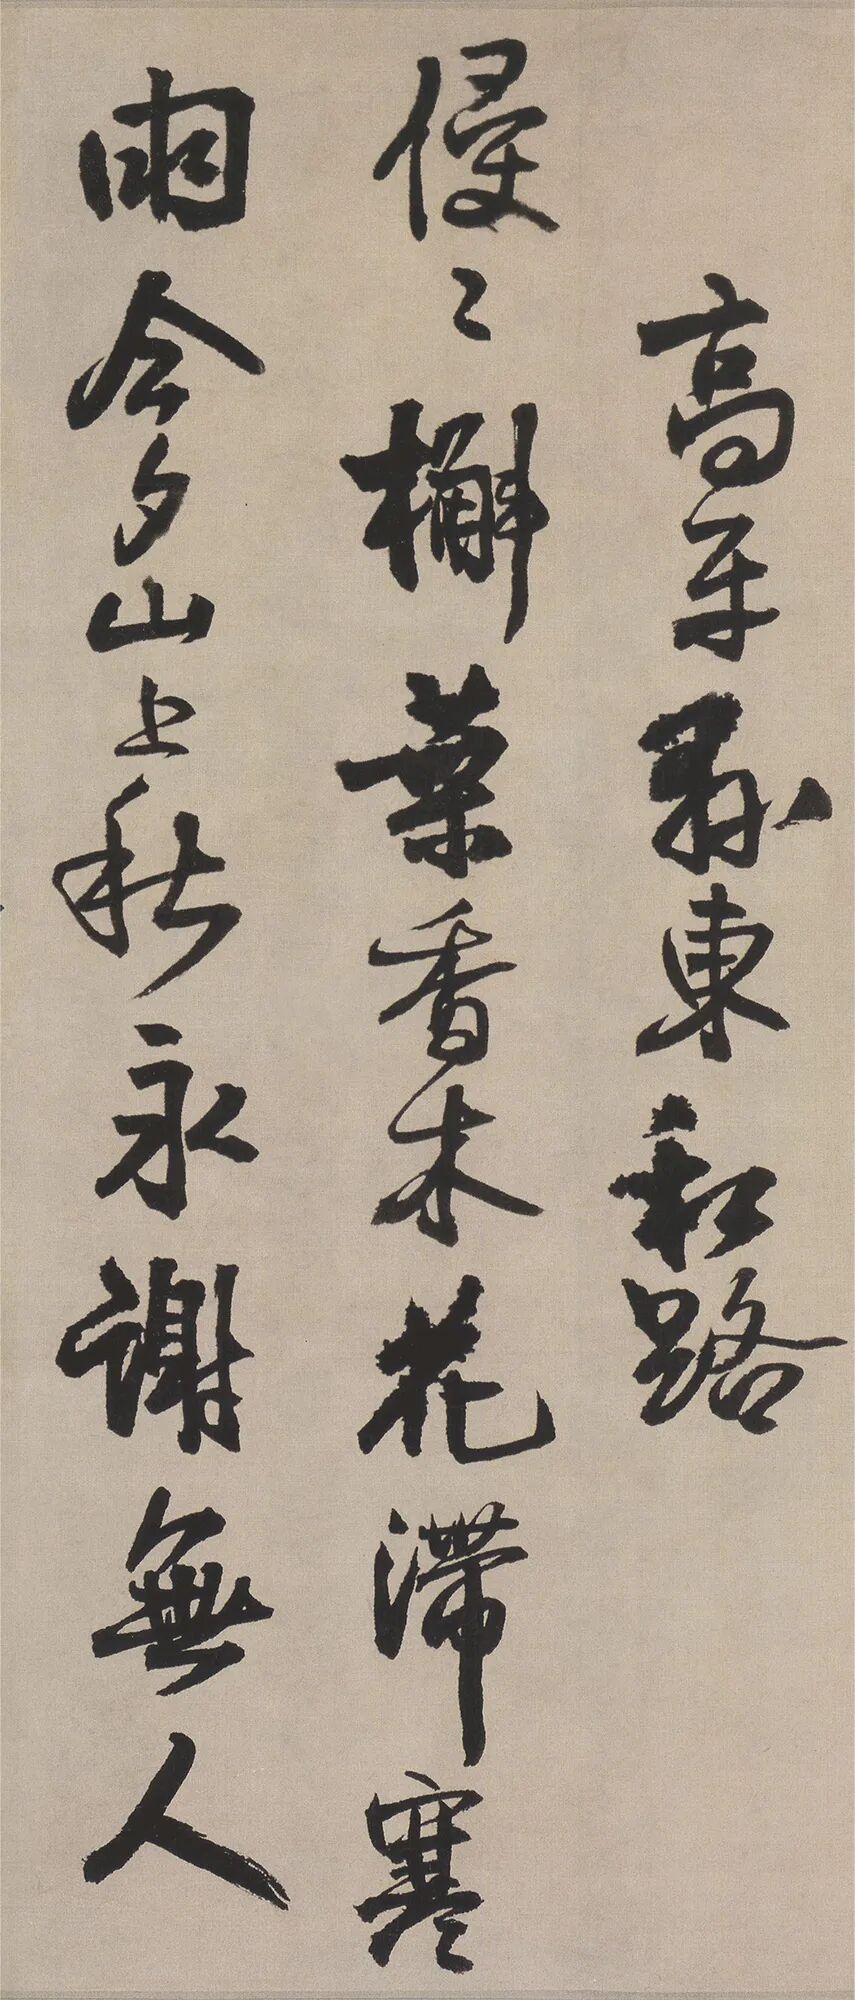 高平县東私路
侵〻槲葉香木花滞寒
雨今夕山上秋永謝無人